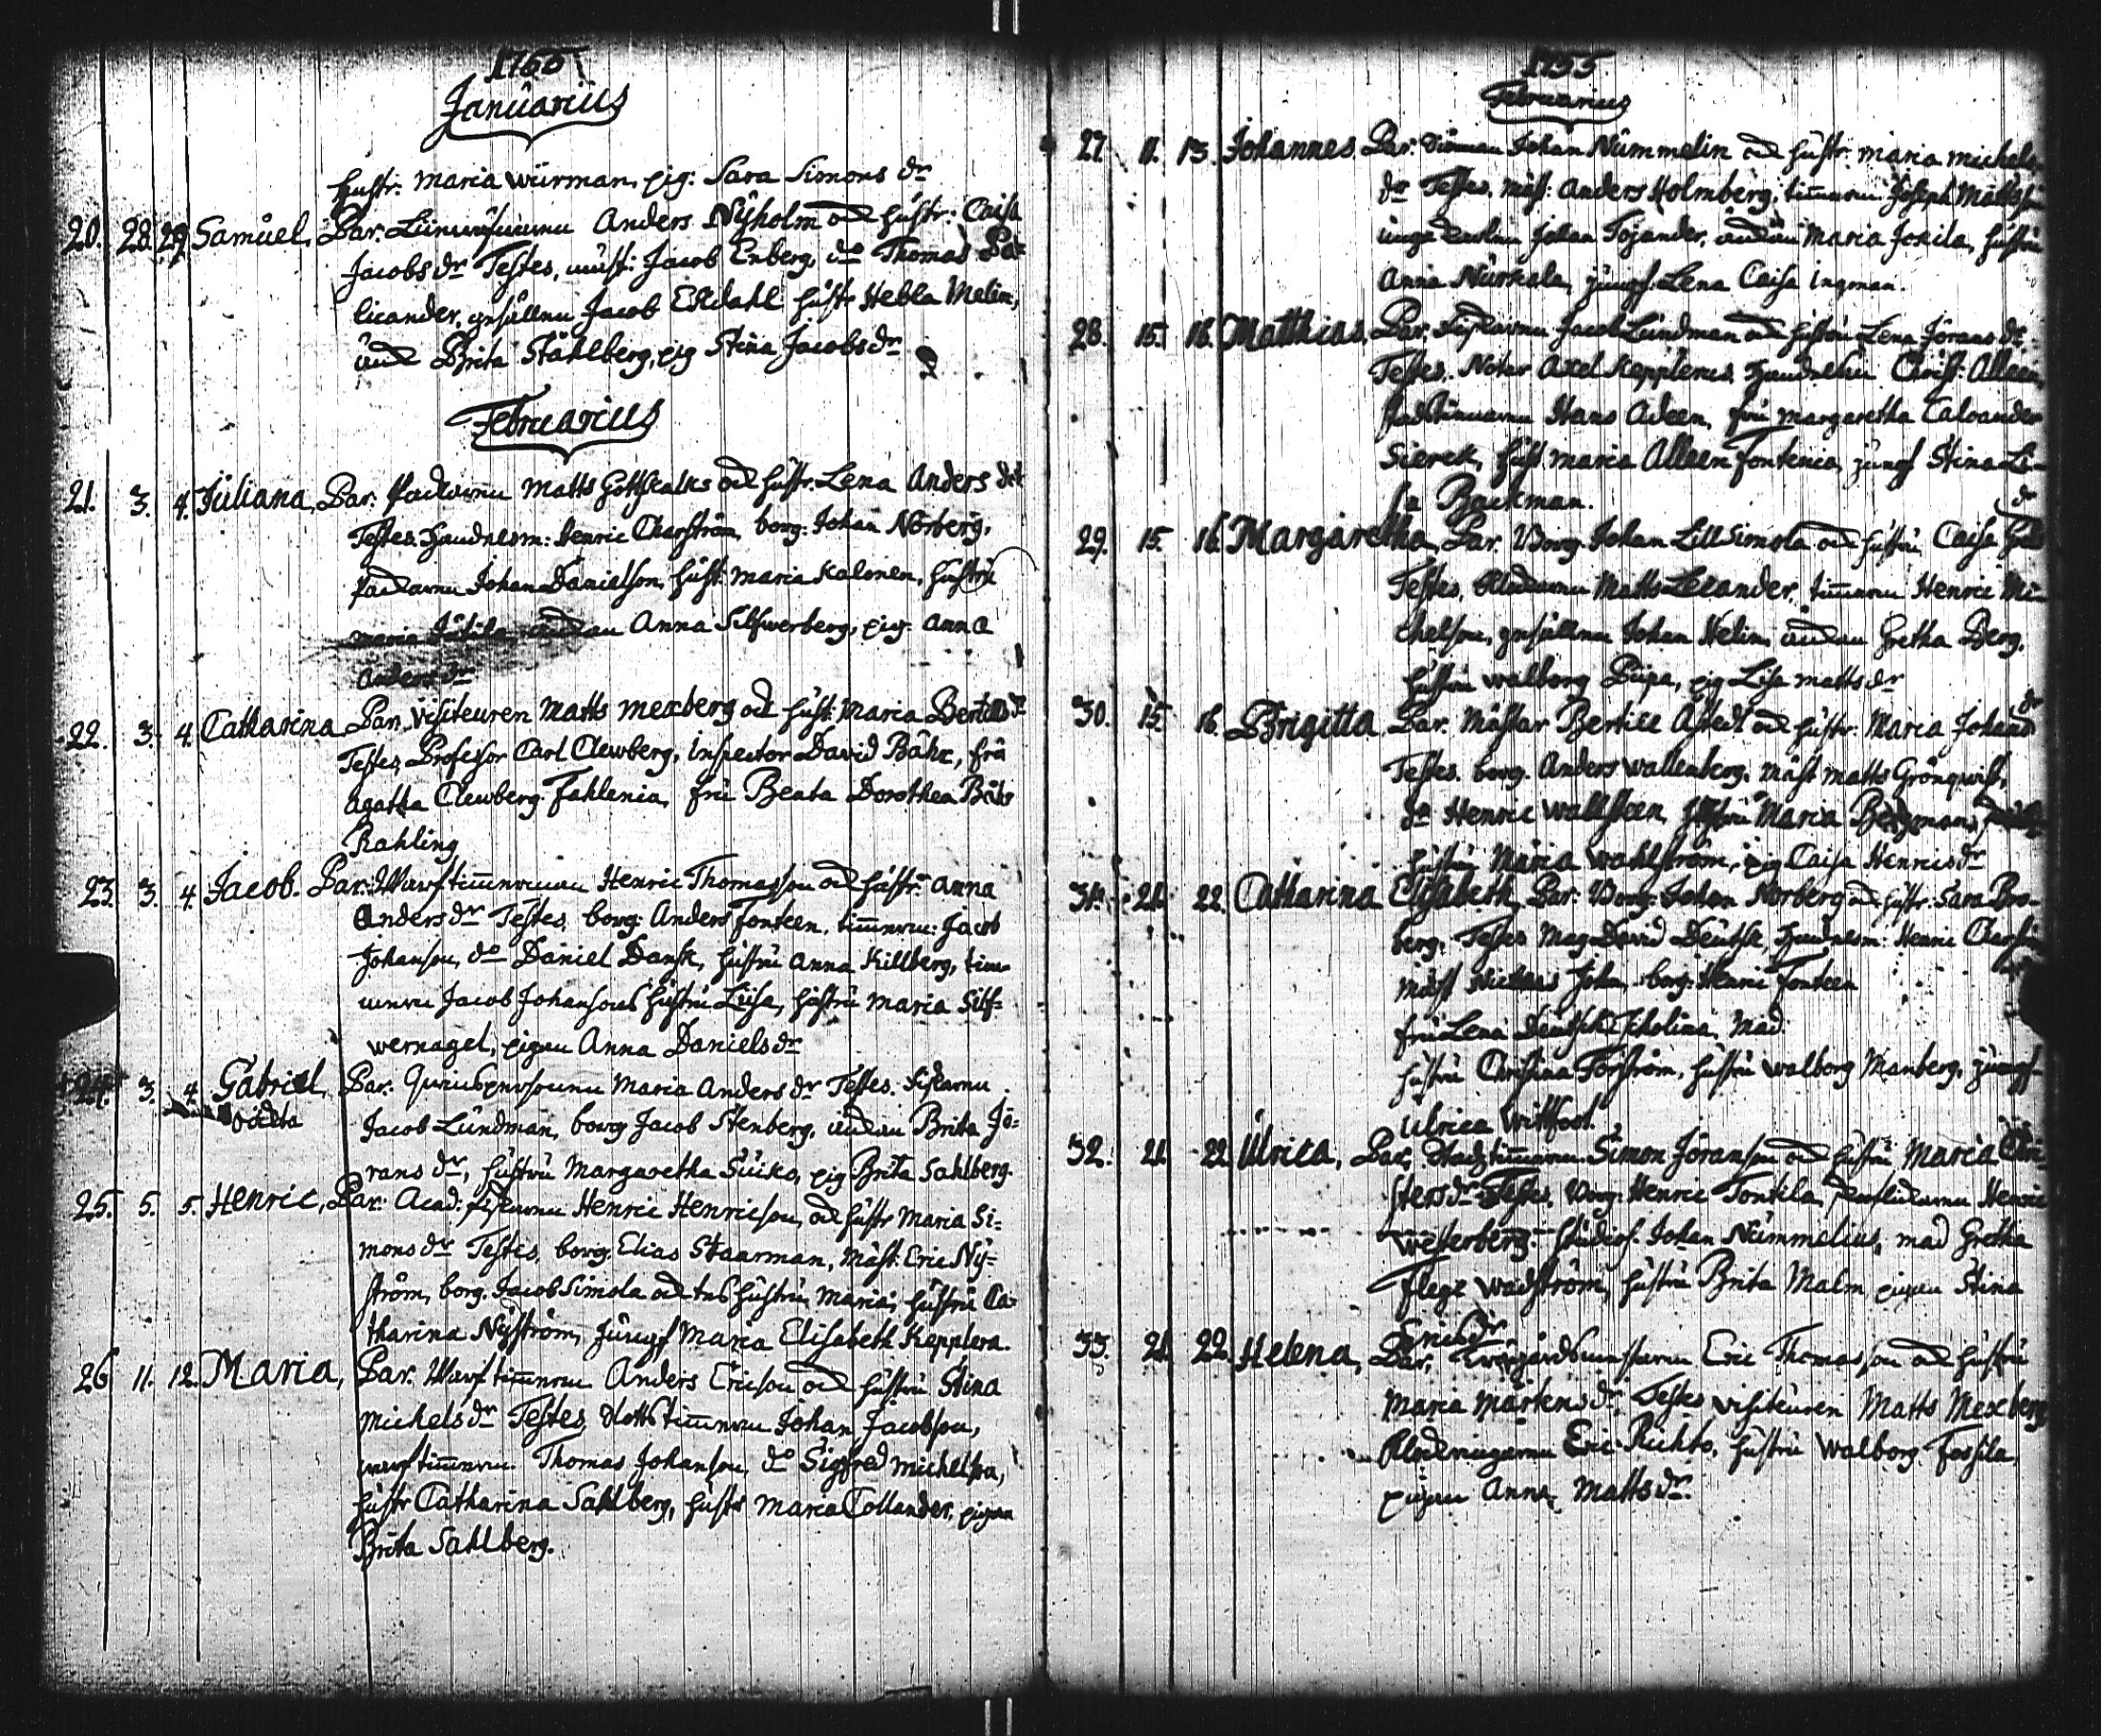 1755
Januarius
hustr. Maria Würman, pig: Sara Simons dr
20. 28. 29. Samuel, Par: Anders Nyholm och hustr: Caisa
Jacobs dr Testes, Jacob Enberg, do Thomas Pa=
licander, gesällen Jacob Ekdahl hustr Hebla Melin,
Brita Ståhlberg, pig Stina Jacobs dr
Februarius
21. 3. 4. Juliana, Par. Matts Gottskalks och hustr. Lena Anders dr
Testes. Handelsm: Henric Cherström, borg: Johan Norberg,
Johan Danielson, hust: Maria Kalonen, hustru
Maria änckan Anna Silfwerberg, pig: Anna
Anders dr
22. 3. 4. Catharina Par, visiteuren Matts Mexberg och hust: Maria Bertils dr
Testes, Professor Carl Clewberg, Inspector David Bähr, fru
Agatha Clewberg Fahlenia, fru Beata Dorothea Bährs
Rahling
23. 3. 4. Jacob. Par: Warfstimerman Henric Thomasson och hustr: Anna
Anders dr Testes, borg: Anders Fonteen, timerm: Jacob
Johanson, do Daniel Dansk, hustru Anna Killberg, tim=
Jacob Johansons hustru Lisa, hustru Maria Silf=
wernagel, pigan Anna Daniels dr
24. 3. 4. Gabriel, Par: Maria Anders dr Testes. fiskaren
oächta Jacob Lundman, borg Jacob Stenberg, änckan Brita Jö=
rans dr, hustru Margaretha Suika, pig Brita Sahlberg.
25. 5. 5. Henric, Par: Acad: fiskaren Henric Henricson och hustr Maria Si=
mons dr Testes, borg. Elias Staarman, mäst: Eric Ny=
ström, borg. Jacob Simola och dess hustru Maria, hustru Ca=
tharina Nyström, Jungf Maria Elisabeth Kepplera.
26 11. 12. Maria, Par. Warfstimerm Anders Ericson och hustru Stina
Michels dr Testes, Slottstimerm Johan Jacobson,
warfstimerm. Thomas Johanson, do Sigfred Michelson,
hustr Catharina Sahlberg, hustr Maria Collander, pigan
Brita Sahlberg.
1755
Februarius
27. 11. 13. Johannes. Par: Johan Nummelin och hustr: Maria Michels
dr Testes. mäst: Anders Holmberg, timerm: Joseph Mattson
Johan Tojander, änckan Maria Jokila, hustru
Anna Nurkala, jungf. Lena Caisa Ingman.
28. 15. 16. Matthias, Par. fiskaren Jacob Lundman och hustru Lena Jörans dr.
Testes. Notar Axel Kepplerus, Handelsm Christ: Alleen,
Hans Adeen, fru Margaretha Caloander
Sierck, hust Maria Alleen Fontenia, jungf Stina Li=
sa Backman.
29. 15. 16. Margaretha, Par. Borg. Johan Lillsimola och hustru Caisa dr
Testes, Matts Lecander, timerm Henric Mi=
chelson, gesällen Johan Helin, änckan Gretha Berg,
hustru Walborg Pipa, pig Lisa Matts dr
30. 15. 16. Brigitta, Par. Mästar Bertill Astedt och hustr: Maria Johans dr
Testes. borg. Anders Wallenberg, mäst Matts Grönqwist,
do Henric Wallsteen, hustru Maria Bergman,
hustru Maria Wahlström, pig Caisa Henrics dr
31. 21. 22. Catharina Elisabeth, Par: Borg: Johan Norberg och hustr: Sara Bro=
berg. Testes Mag David Deutsk, Handelsm: Henric Cherström
mäst Johan borg: Henric Fonteen
fru Lena Deutsk Ischolina, Mad
hustru Christina Forström, hustru Walborg Manberg, jungf
Ulrica Wittfoot.
32. 21. 22 Ulrica, Par. Stadstimerm Simon Jöranson och hustru Maria Chri=
sters dr Testes, Borg: Henric Tontila, Henric
Westerberg: studios. Johan Nummelius, mad Gretha
Flege Wadström, hustru Brita Malm pigan Stina
Erics dr
33. 21. 22. Helena, Par, Eric Thomasson och hustru
Maria Mårtens dr, Testes visiteuren Matts Mexberg
Klockringaren Eric Richts, hustru Walborg Fossila
pigan Anna Matts dr.